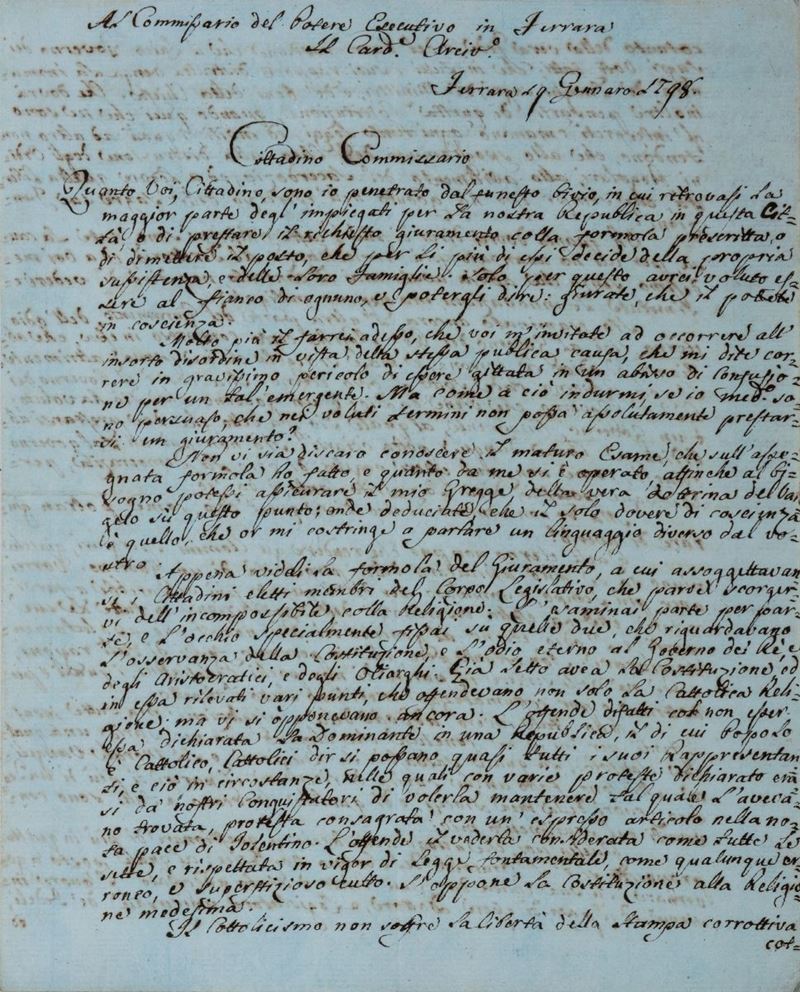 Al Commissario del Potere Esecutivo in Ferrara
Il Card.e Arciv.o
Ferrara 19. Gennaro 1798.
Cittadino Commissario
Quanto Voi, Cittadino, sono io penetrato dal funesto bivio, in cui ritrovasi la
maggior parte degl' impiegati per la nostra Republica in questa Cit=
tà o di prestare il richiesto giuramento colla formola prescritta, o
di dimettere il posto, che per li più di essi decide della propria
sussistenza, e delle loro famiglie. Solo per questo avrei voluto es=
sere al fianco di ognuno, e potergli dire: giurate, che il potete
in coscienza.
Molto più il farrei adesso, che voi m'invitate ad occorrere all'
insorto disordine in vista della stessa publica causa, che mi dite cor=
rere in gravissimo pericolo di essere gittata in un abisso di confusio=
ne per un tal' emergente. Ma come a ciò indurmi, se io med.o so=
no persuaso, che nei voluti termini non possa assolutamente prestar=
si un giuramento?
Non vi sia discaro conoscere il maturo Esame, che sull'asse=
gnata formola ho fatto, e quanto da me si è operato, affinche al bi=
sogno potessi assicurare il mio Gregge della vera dottrina del Van=
gelo su questo punto; onde deduciate, che il solo dovere di coscienza
è quello, che or mi costringe a parlare un linguaggio diverso dal vo=
stro.
Appena viddi la formola del Giuramento, a cui assoggettavan
si i Cittadini eletti membri del Corpo Legislativo, che parsemi scorger
vi dell'incompossibile colla Religione: L'esaminai parte per par=
te, e l'occhio specialmente fissai su quelle due, che riguardavano
l'osservanza della Costituzione, e l'odio eterno al Governo dei Re, e
degli Aristocratici, e degli Oliarghi. Già letto avea la Costituzione, ed
in essa rilevati vari punti, che offendevano non solo la Cattolica Reli=
gione: ma vi si opponevano ancora. L'offende difatti col non esser
essa dichiarata la Dominante in una Republica, il di cui Popolo
è Cattolico, Cattolici dir si possano quasi tutti i suoi Rappresentan
ti, e ciò in circostanze, nelle quali con varie proteste dichiarato eran
si da' nostri Conquistatori di volerla mantenere tal quale l'aveva=
no trovata, protesta consagrata con un' espresso articolo nella no=
ta pace di Tolentino. L'offende il vederla considerata come tutte le
sette, e rispettata in vigor di Legge fontamentale, come qualunque er=
roneo, e superstizioso culto. S'oppone la Costituzione alla Religio
ne medesima.
Il Cottolicismo non soffre la libertà della Stampa corrottiva
cot=